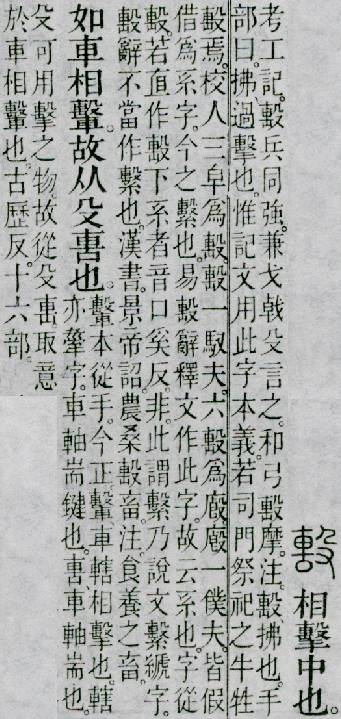 毄 相擊中也。
考工記。毄兵同強。兼戈戟殳言之。和弓毄摩。注。毄、拂也。手
部曰。拂、過擊也。惟記文用此字本義。若司門祭祀之牛牲
毄焉。校人三皁爲毄。毄一馭夫。六毄爲廏。廏一僕夫。皆假
借爲系字。今之繫也。易毄辭釋文作此字。故云系也。字從
毄。若直作毄下系者。音口奚反。非。此謂繫乃說文繫𦃇字。
毄辭不當作繫也。漢書。景帝詔。農桑毄畜。注。食養之畜。
如車相轚。故从殳軎也。
轚本從手。今正。轚、車轄相擊也。轄
亦舝字。車軸耑鍵也。軎、車軸耑也。
殳可用擊之物。故從殳軎。取意
於車相轚也。古歷反。十六部。